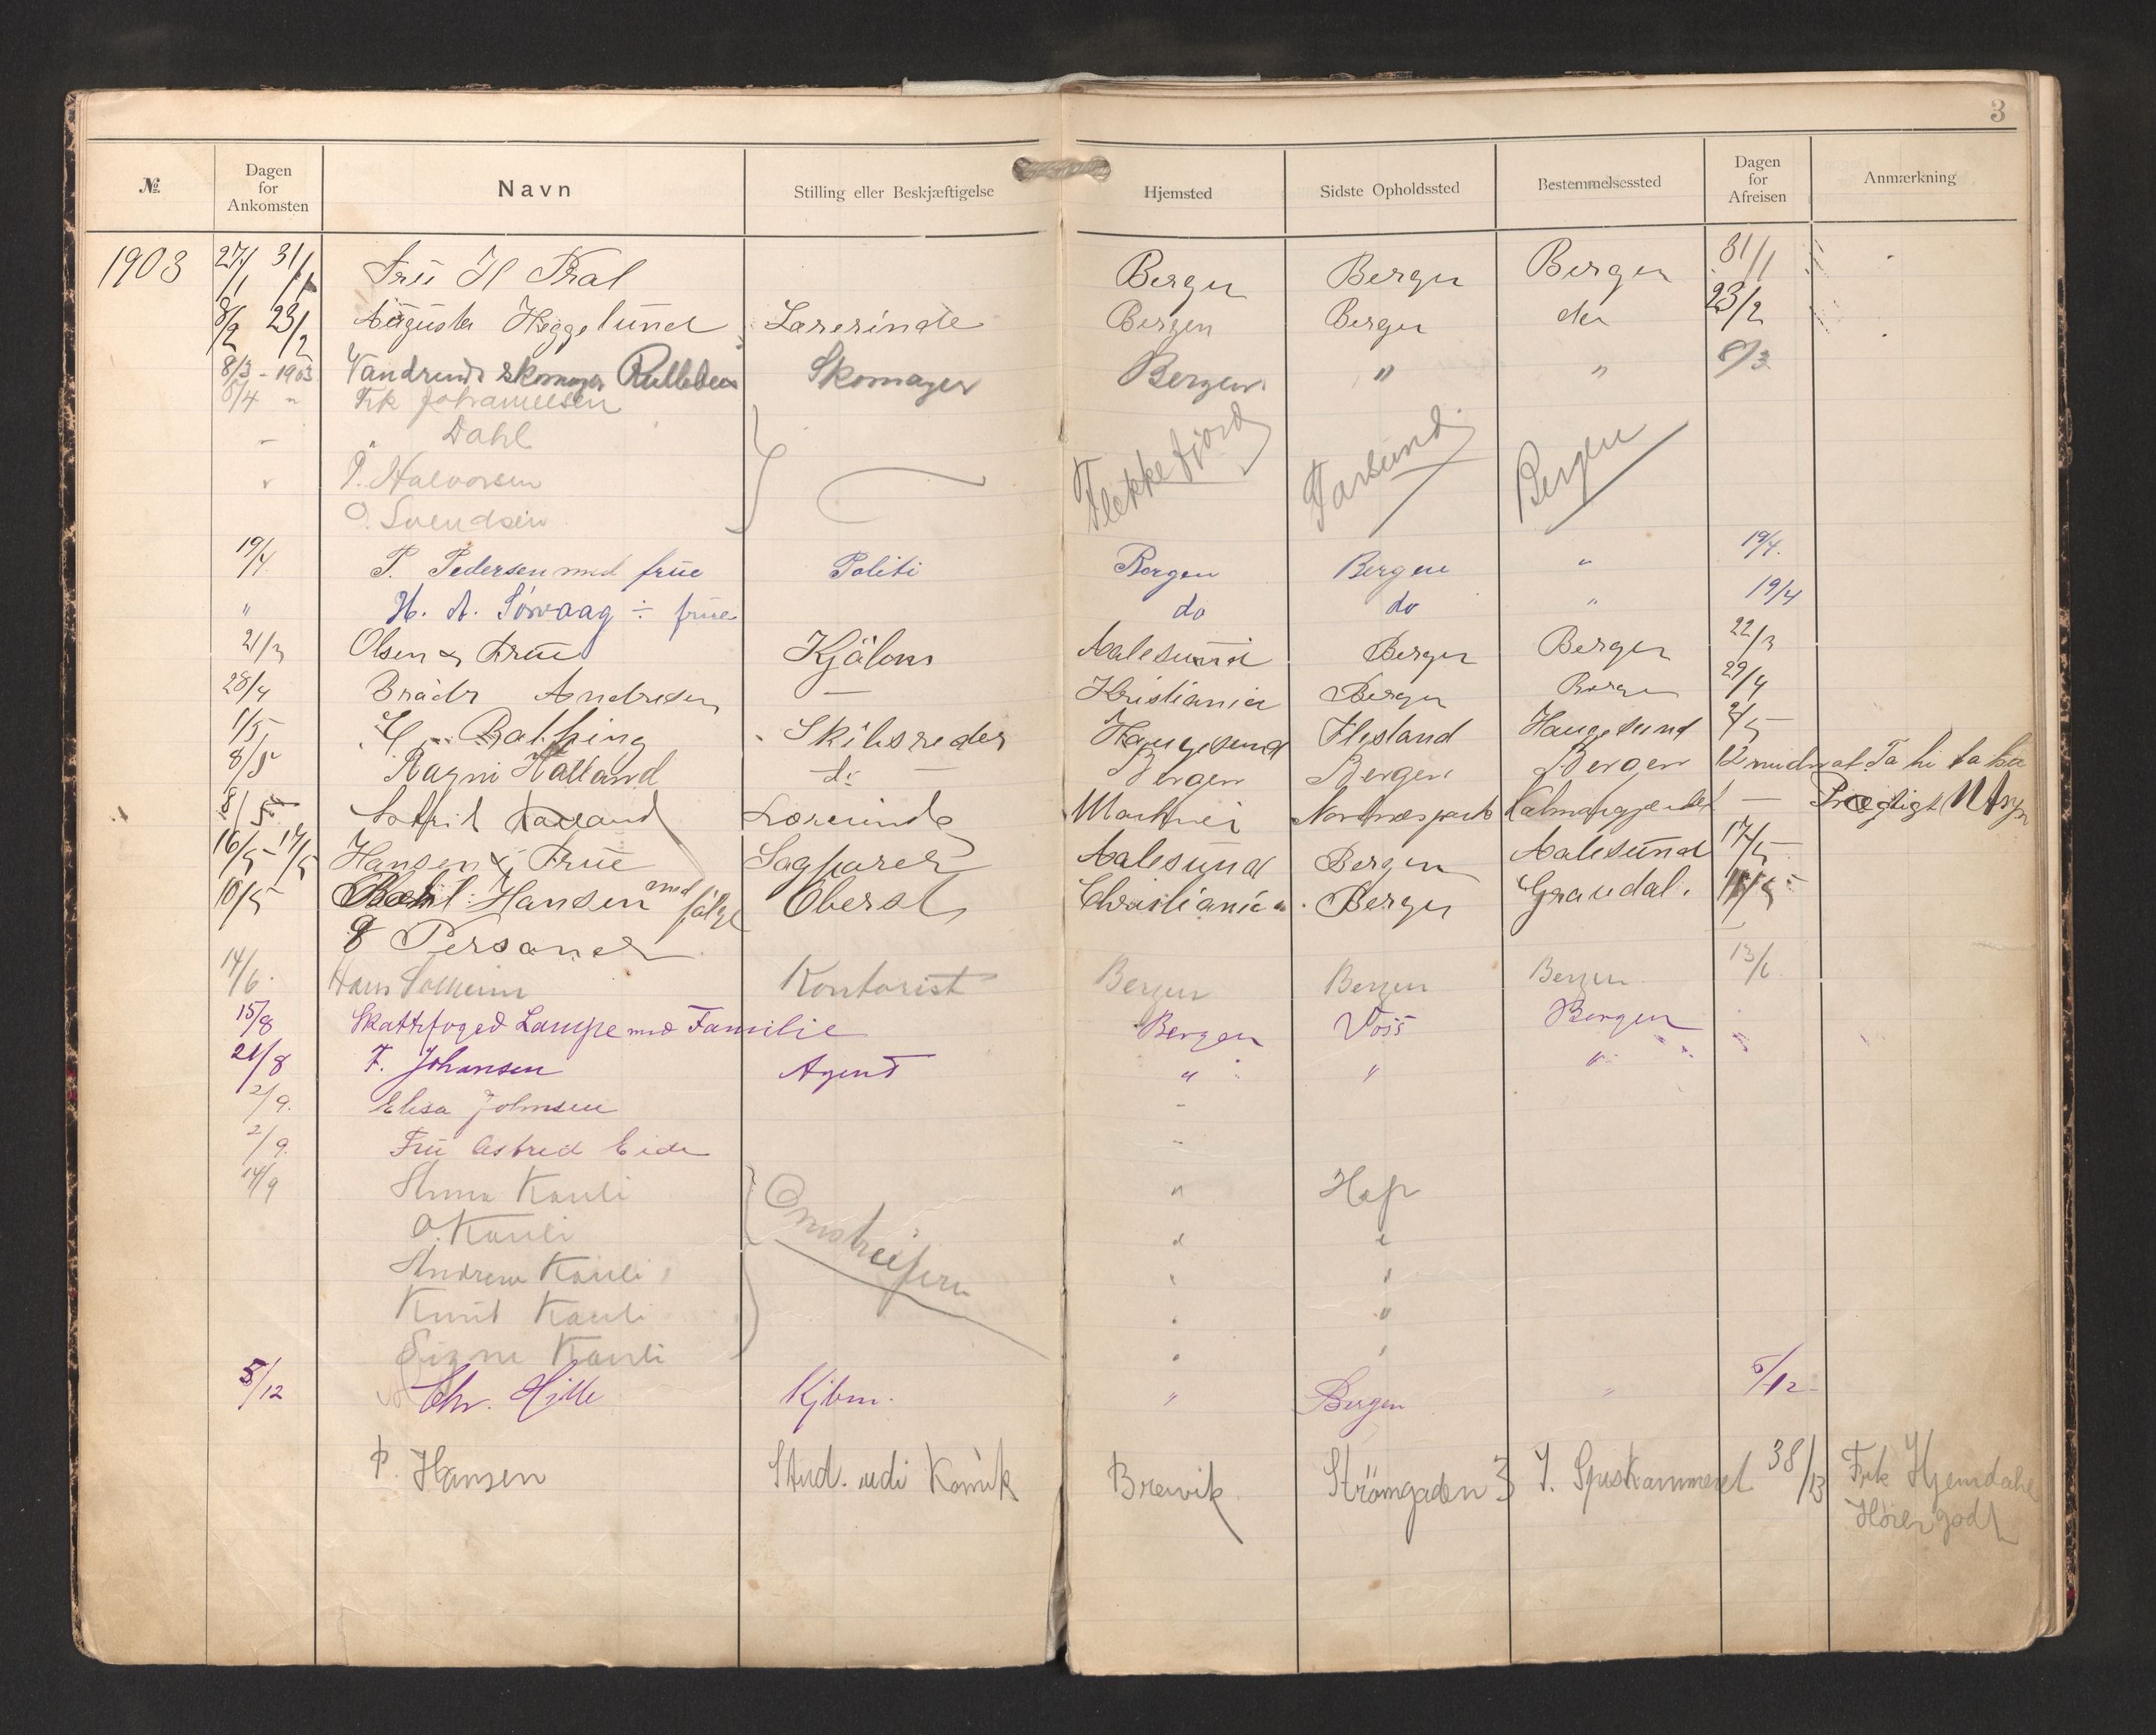 3
№ Dagen for Ankomsten Navn Stilling eller Beskjæftigelse Hjemsted Sidste Opholdssted Bestemmelsessted Dagen for Afreisen Anmærkning
1903 27/1 31/1 Frü H Kral Bergen Bergen Bergen 31/1
8/2 23/2 Augusta Heggelund Larerinde Bergen Bergen 23/2
8/3 - 1903 Vandrende skomager Skomager Bergen " " 8/3
5/4 " Frk Johannessen
- " Dahl Flekkefjord Farsund Bergen
" P. Halvorsen
O. Svendsen
19/4 P. Pedersen med früe Politi Bergen Bergen " 19/4.
" H. A. Sørvaag ÷ früe do do " 19/4
21/3 Olsen & Früe Aalesund Bergen Bergen 22/3
28/4 Brødr Andresen — Kristiania Bergen Bergen 29/4
1/5 Skibsreder Haugesund Flesland Haugesund 2/5
8/5 Ragni Halland do — Bergen Bergen Bergen 12 midnat
8/5 Halland Lærerinde —
16/5 - 17/5 Hansen & Früe Aalesund Bergen Aalesund 17/5
10/5 Hansen med følge Oberst Christiania Bergen
8 Personer
14/6. Hans Solheim Kontorist Bergen Bergen Bergen 13/6
15/8 Skattefoged Lampe med Familie Bergen Voss Bergen "
21/8 F. Johansen Agent " " "
2/9. Elisa Johnsen -
2/9. Frü Astred Eide -
14/9 Anna Kauli Omstreifere " Hop
O. Kauli " "
Andrew Kauli " "
Knut Kauli " "
Signe Kauli " "
5/12 Chr. Hille Kjbm. " Bergen " 5/12
P. Hansen Stud. Brevik Strömgaden 3 I. Spiskammeret 38/13 Frk Hjemdahl
Hører godt